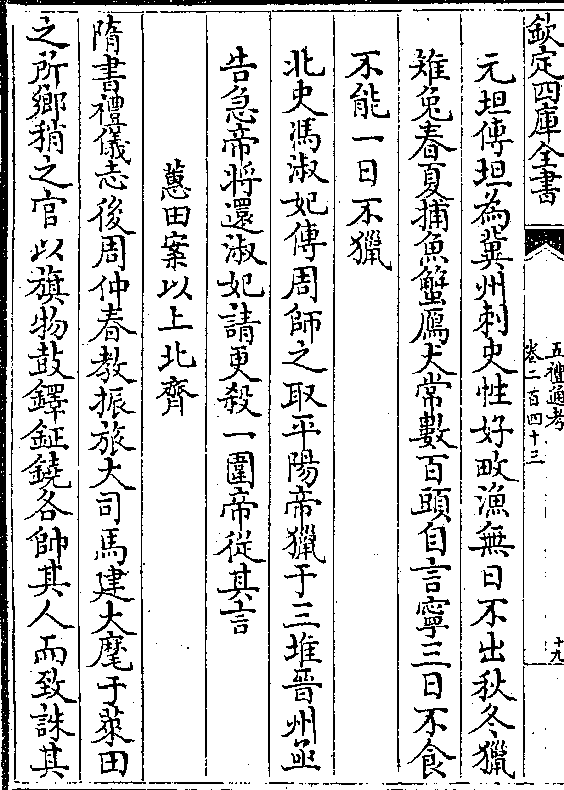 欽定四庫全書
五禮通考
卷二百四十三
十九
元坦傳坦為冀州刺史性好畋漁無日不出秋冬獵
雉兔春夏捕魚蟹鷹犬常數百頭自言寧三日不食
不能一日不獵
北史馮淑妃傳周師之取平陽帝獵于三堆晉州亟
告急帝將還淑妃請更殺一圍帝從其言
蕙田案以上北齊
隋書禮儀志後周仲春教振旅大司馬建大麾于萊田
之所鄉稍之官以旗物鼓鐸鉦鐃各帥其人而致誅其